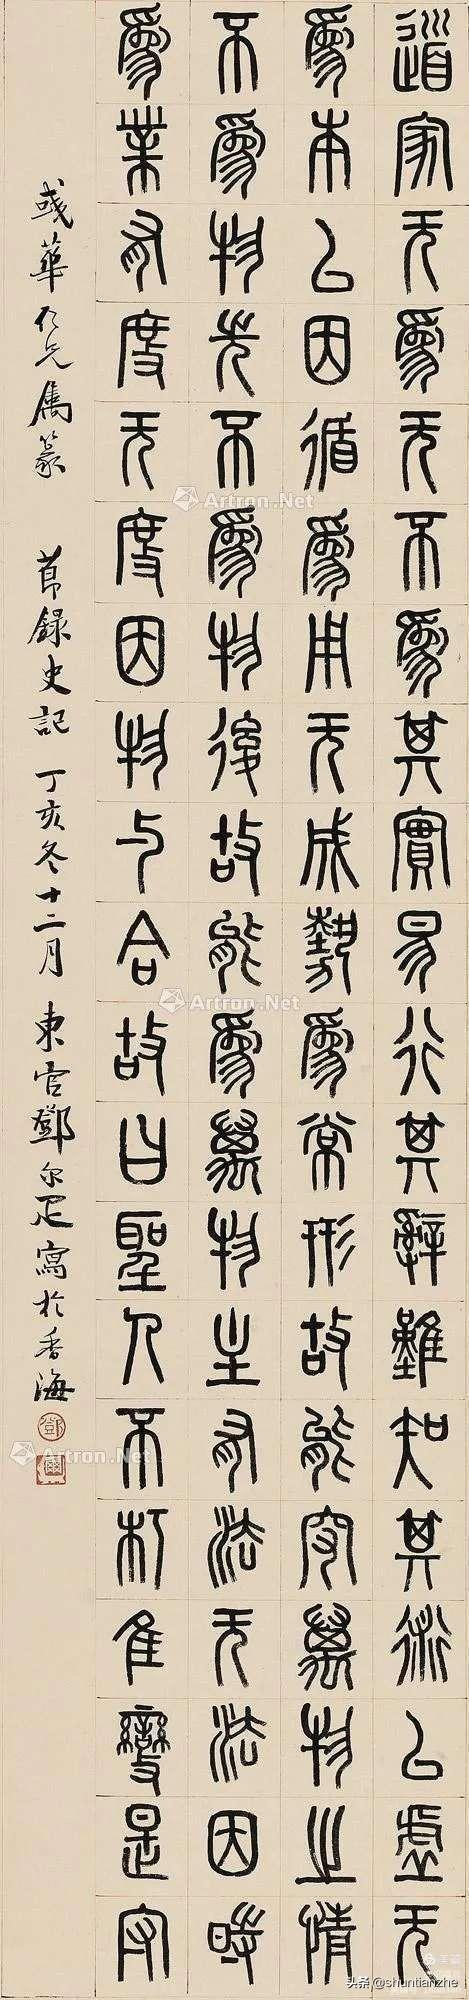 道家无爲无不爲其實易行其辭難知其術㠯虛无
爲本㠯因循爲用无成勢爲常形故能究萬物之情
不爲物先不爲物後故能爲萬物主有法无法因時
爲業有度无度因物与合故曰聖人不朽隹變是守
彧華仁兄屬篆 節錄史記 丁亥冬十二月 東官鄧尔疋寫於香海
鄧
爾
Artron.Net
Artron.Net
Artron.Net
头条 @shuntianzhe